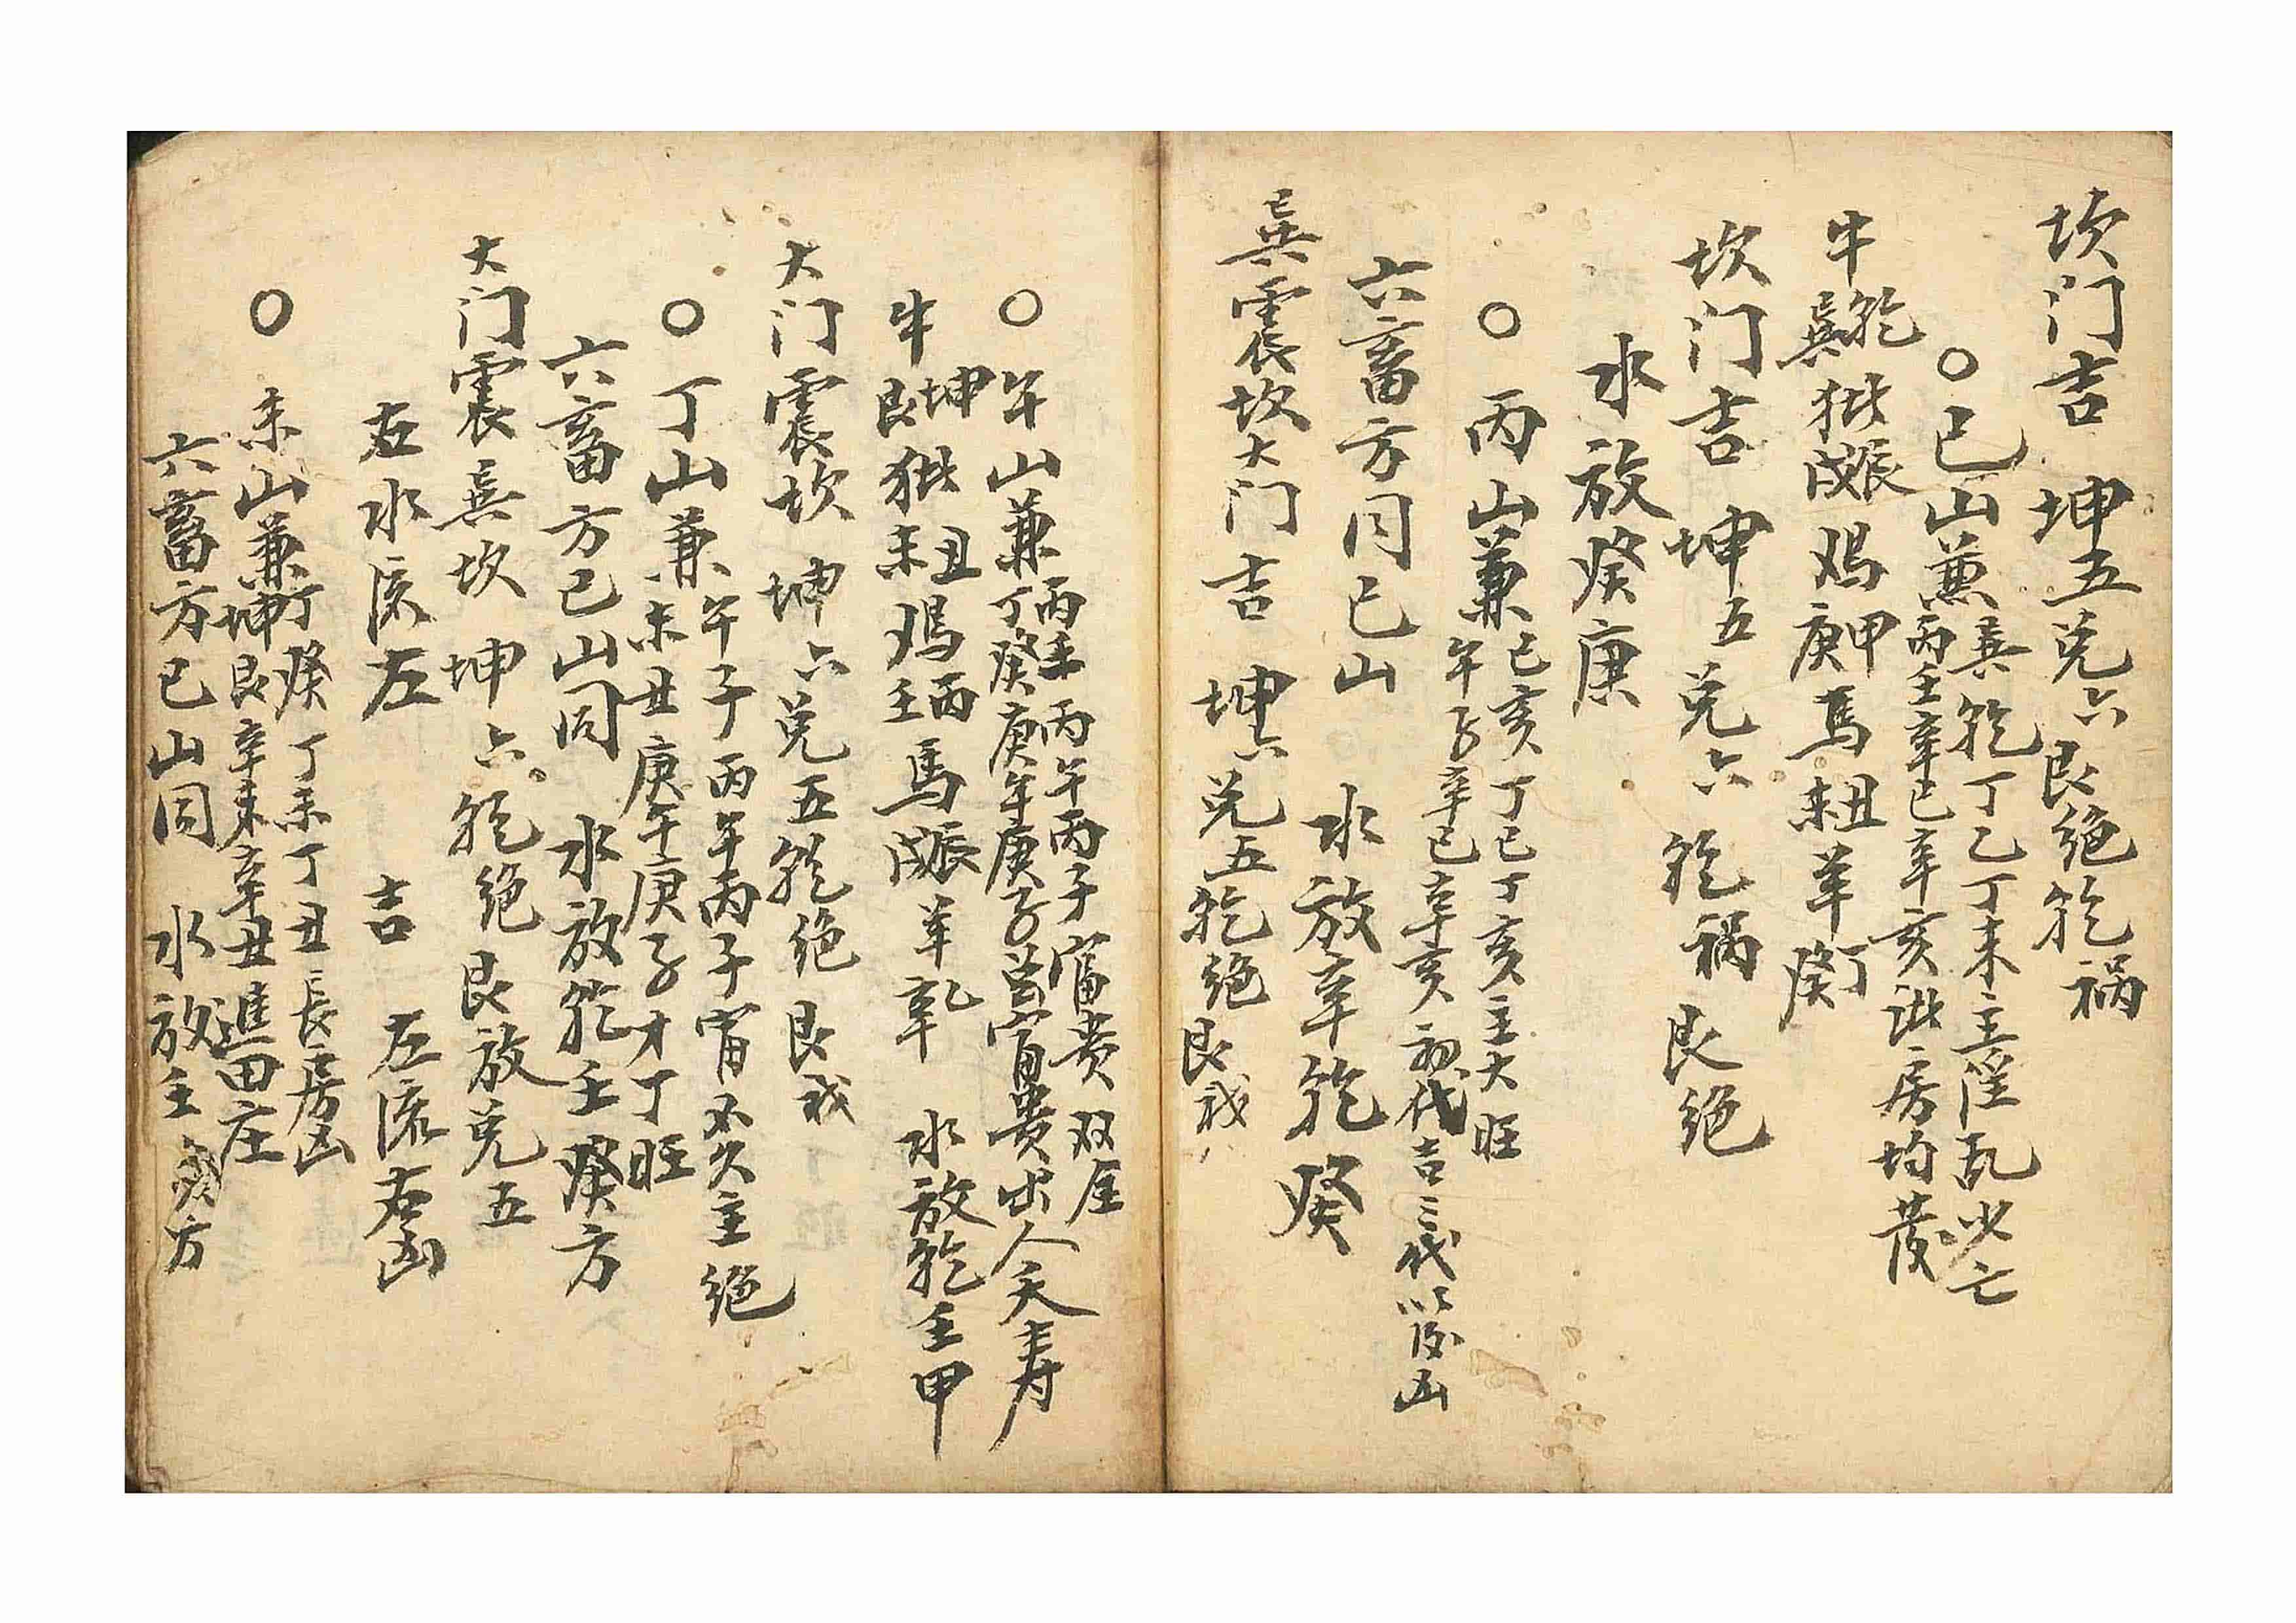 坎门吉 坤五兑六艮绝乾祸
○巳山兼巽乾丁乙丁未主淫乱少亡
丙壬辛巳辛亥 房均發
牛乾巽 戌辰鸡甲庚馬丑未羊丁癸
坎门吉 坤五兑六 乾祸艮绝
水放癸庚
○丙山兼巳亥丁巳丁亥主大旺
午子辛巳辛亥初代吉三代以後凶
六畜方同巳山 水放辛乾癸
巽震坎大门吉 坤六兑五乾绝艮
○午山兼丙壬丙午丙子富贵双全
丁癸庚午庚子 富贵出人夭寿
牛坤艮 丑未鸡丙壬馬戌辰羊乾 水放乾壬甲
大门震坎 坤六兑五乾绝艮
○丁山兼午子丙午丙子 不久主绝
未丑庚午庚子才丁旺
六畜方巳山同 水放乾壬癸方
大门震巽坎 坤六乾绝艮放兑五
右水流左 吉 左流右凶
○未山兼丁癸丁未丁丑長房凶
坤艮辛未辛丑進田庄
六畜方巳山同 水放壬癸方